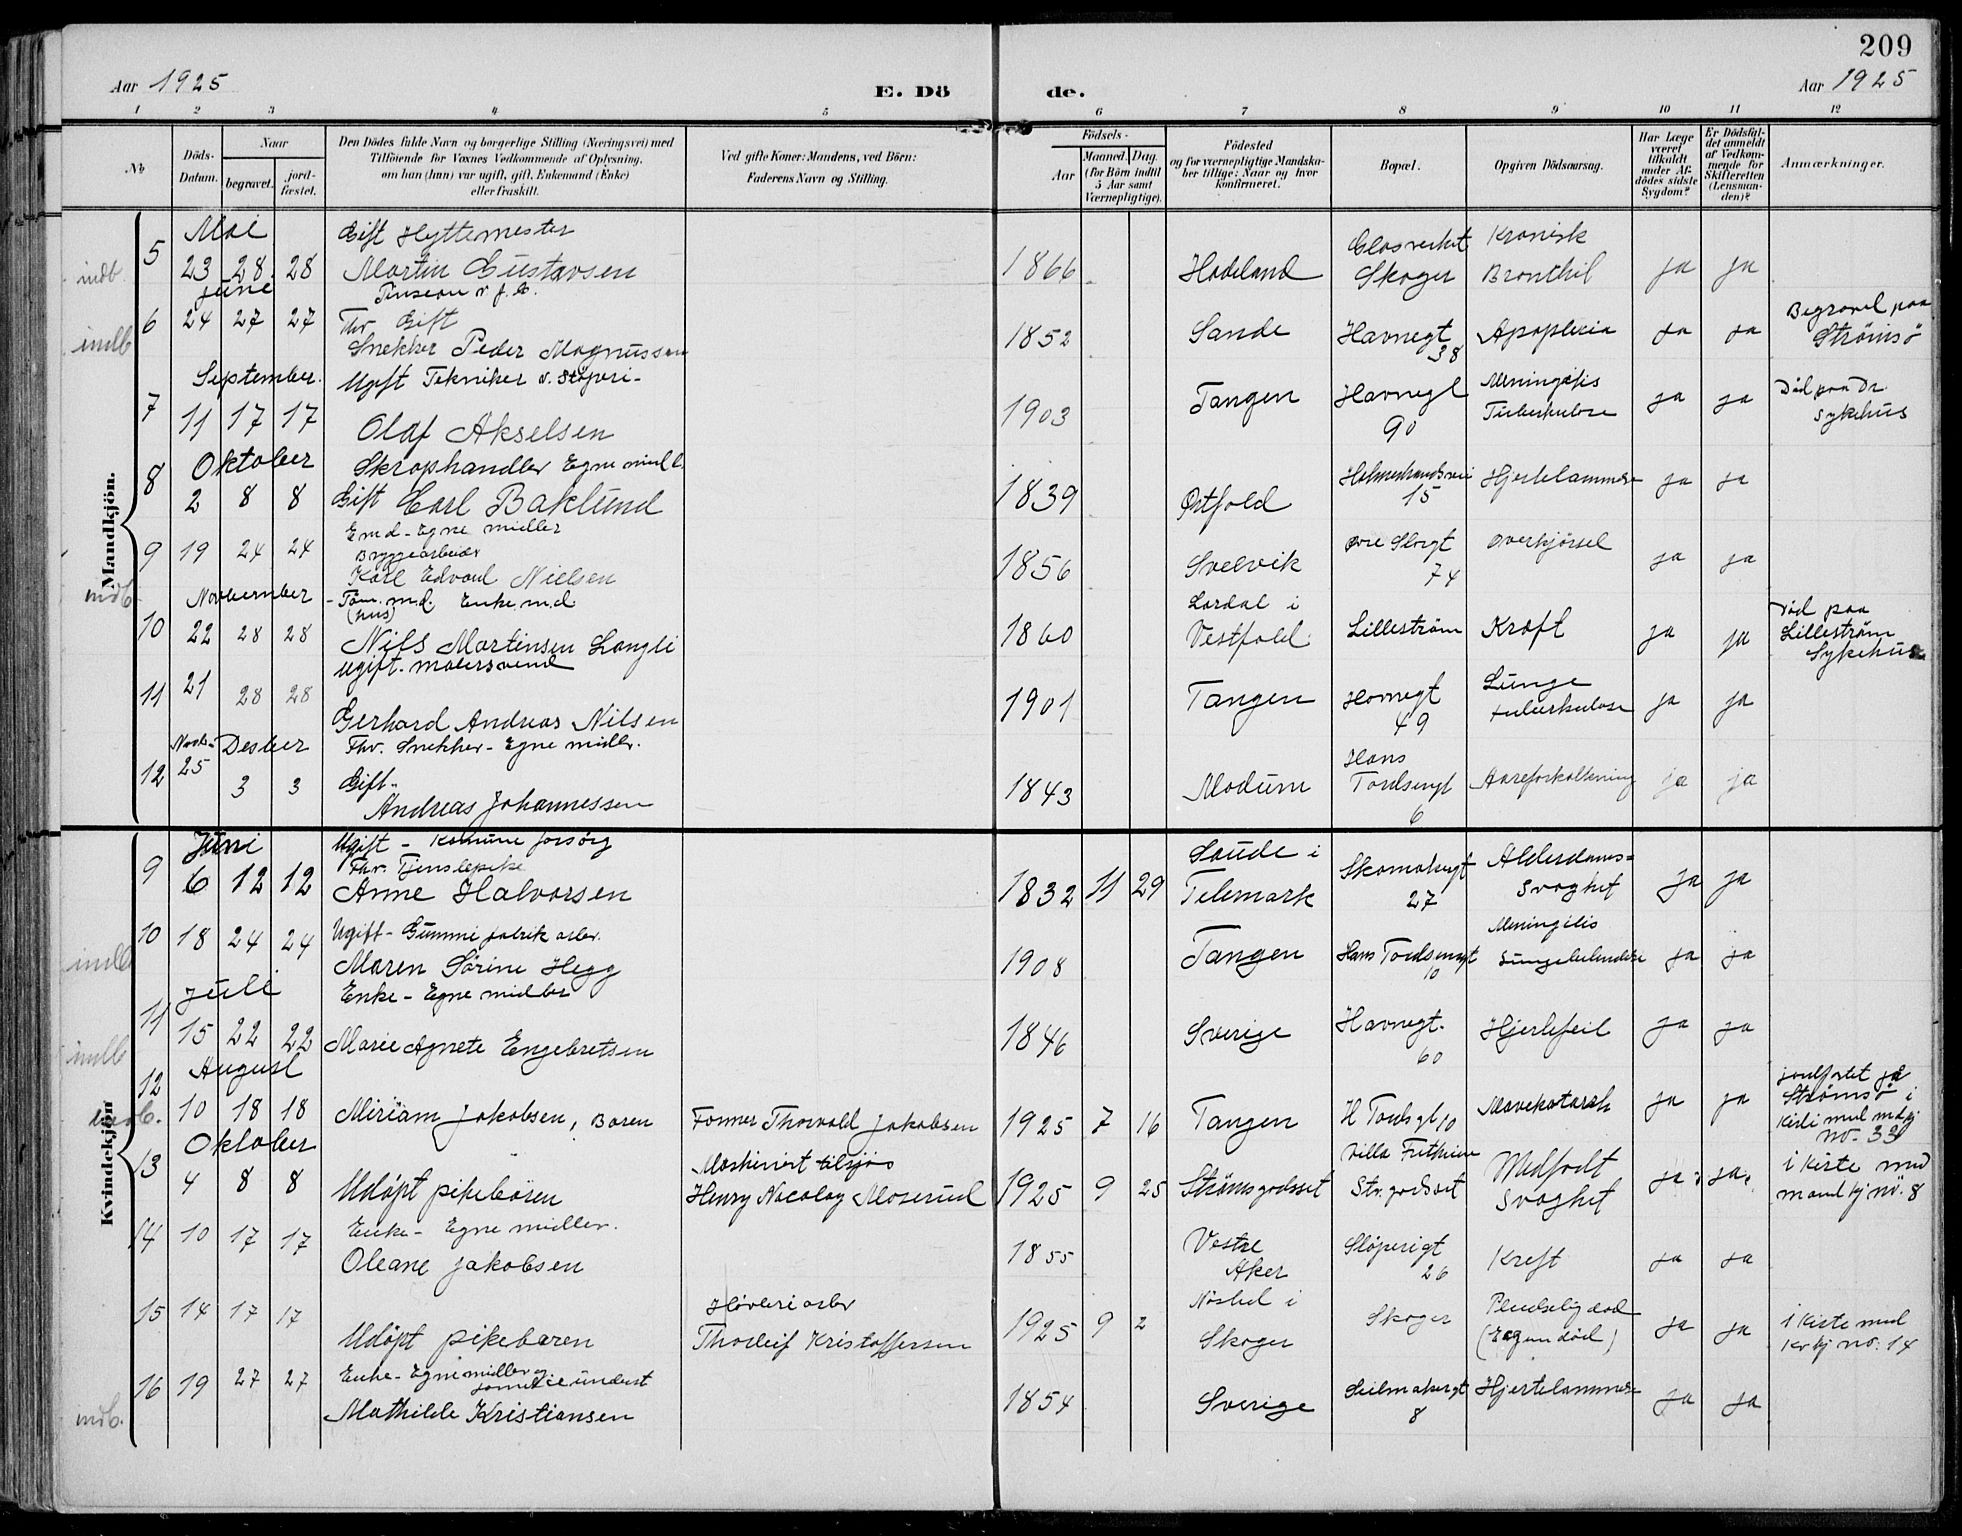 209
Aar 1925
E. Dö
de.
Aar 1925
1 2 3 4 5 6 7 8 9 10 11 12
No
Döds-Datum.
Naar
begravet.
jordfæstet.
Den Dödes fulde Navn og borgerlige Stilling (Næringsvei) med
Tilföiende for Voxnes Vedkommende af Oplysning,
om han (hun) var ugift, gift, Enkemand (Enke)
eller fraskilt.
Ved gifte Koner: Mandens, ved Börn:
Faderens Navn og Stilling.
Födsels-
Aar
Maaned. Dag.
(for Börn indtil
5 Aar samt
Værnepligtige).
Födested
og for værnepligtige Mandska-
ber tillige: Naar og hvor
konfirmeret.
Bopæl.
Opgiven Dödsaarsag.
Har Læge
været
tilkaldt
under Af-
dödes sidste
Sygdom?
Er Dödsfal-
det anmeldt
af Vedkom-
mende for
Skifteretten
(Lensman-
den)?
Anmærkninger.
Mandkjön.
Mai
Gift Hyttemester
Glasverket
Kronisk
indb. 5 23 28 28 Martin Gustavsen 1866 Hadeland Skoger Bronthit ja ja
June
indb 6 24 27 27 Fhv Gift
Snekker Peder Magnussen 1852 Sande Havnegt 38 Apoplexia ja ja Begravet paa
Strømsö
September.
Ugift Tekniker v. Støperi-
7 11 17 17 Olaf Akselsen 1903 Tangen Havnegt 90 Meningitis
Tuberkulose ja ja Död paa Dr.
sykehus
Oktober
Skraphandler Egne midl
8 2 8 8 Gift Carl Baklund 1839 Østfold Holmestrandsveie 15 Hjertelammelse ja ja
Emd - Egne midler
Bryggearbeider
9 19 24 24 Karl Edvard Nielsen 1856 Svelvik Øvre Storgt 74 Overkjörsel ja ja
indb.
November
Töm. m.d. Enke m.d.
(hus)
10 22 28 28 Nils Martinsen Langli 1860 Lardal i
Vestfold Lilleström Kræft ja ja Död paa
Lilleström
Sykehus
ugift. malersvend
11 21 28 28 Gerhard Andreas Nilsen 1901 Tangen Havnegt 49 Lunge
tuberkulose ja ja
Novb. Desber
Fhv. Snekker - Egne midlr.
12 25 3 3 Gift.
Andreas Johannessen 1843 Modum Hans
Tordsengt 6 Aareforkalkning ja ja
Kvindekjön
Juni
Ugift - Komune forsörg
Fhv. Tjenstepike
9 6 12 12 Anne Halvorsen 1832 11 29 Saude i
Telemark Skomakergt 27 Alderdoms=
svaghet ja ja
Ugift - Gummi fabrik arbr.
indb 10 18 24 24 Maren Sörine Hegg 1908 Tangen Hans Tordsengt 10 Meningitis
ja ja
Juli
Enke - Egne midler
indb 11 15 22 22 Marie Agnete Engebretsen 1846 Sverige Havnegt. 60 Hjertefeil ja ja
August
indb. 12 10 18 18 Miriam Jakobsen, Baren Former Thorvald Jakobsen 1925 7 16 Tangen H Tordsgt 10 Mavekatarrh ja ja jordfestet på
Strømsö i
med mdkj
no. 33
Oktober
Maskinist tilsjøs
13 4 8 8 Udöpt pikebören Henry Nicolay Moserud 1925 9 25 Strömsgodsset Villa
Str. godsset Medfödt
svaghet ja ja i kiste med
mandkj no. 8
Enke - Egne midler.
14 10 17 17 Oleane Jakobsen 1855 Vestre
Aker Stöperigt 26 Kreft ja ja
Høvleri arbr
15 14 17 17 Udöpt pikebaren Thorleif Kristoffersen 1925 9 2 i
Skoger Skoger Pludselig död
ja ja i kiste med
kv kj no: 14
Enke - Egne midler og
underst
indb. 16 19 27 27 Mathilde Kristiansen 1854 Sverige Seilmakergt 8 Hjertelammelse ja ja